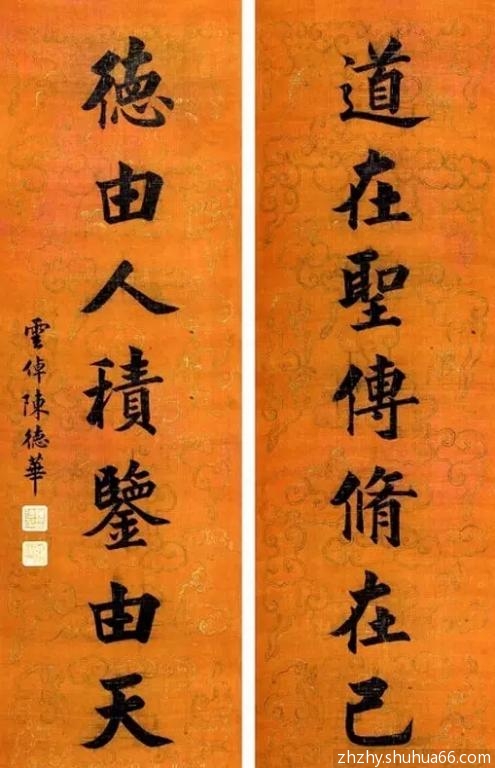 道在聖傳脩在己
德由人積鑒由天
雲倬陳德華
zhzhy.shuhua66.com